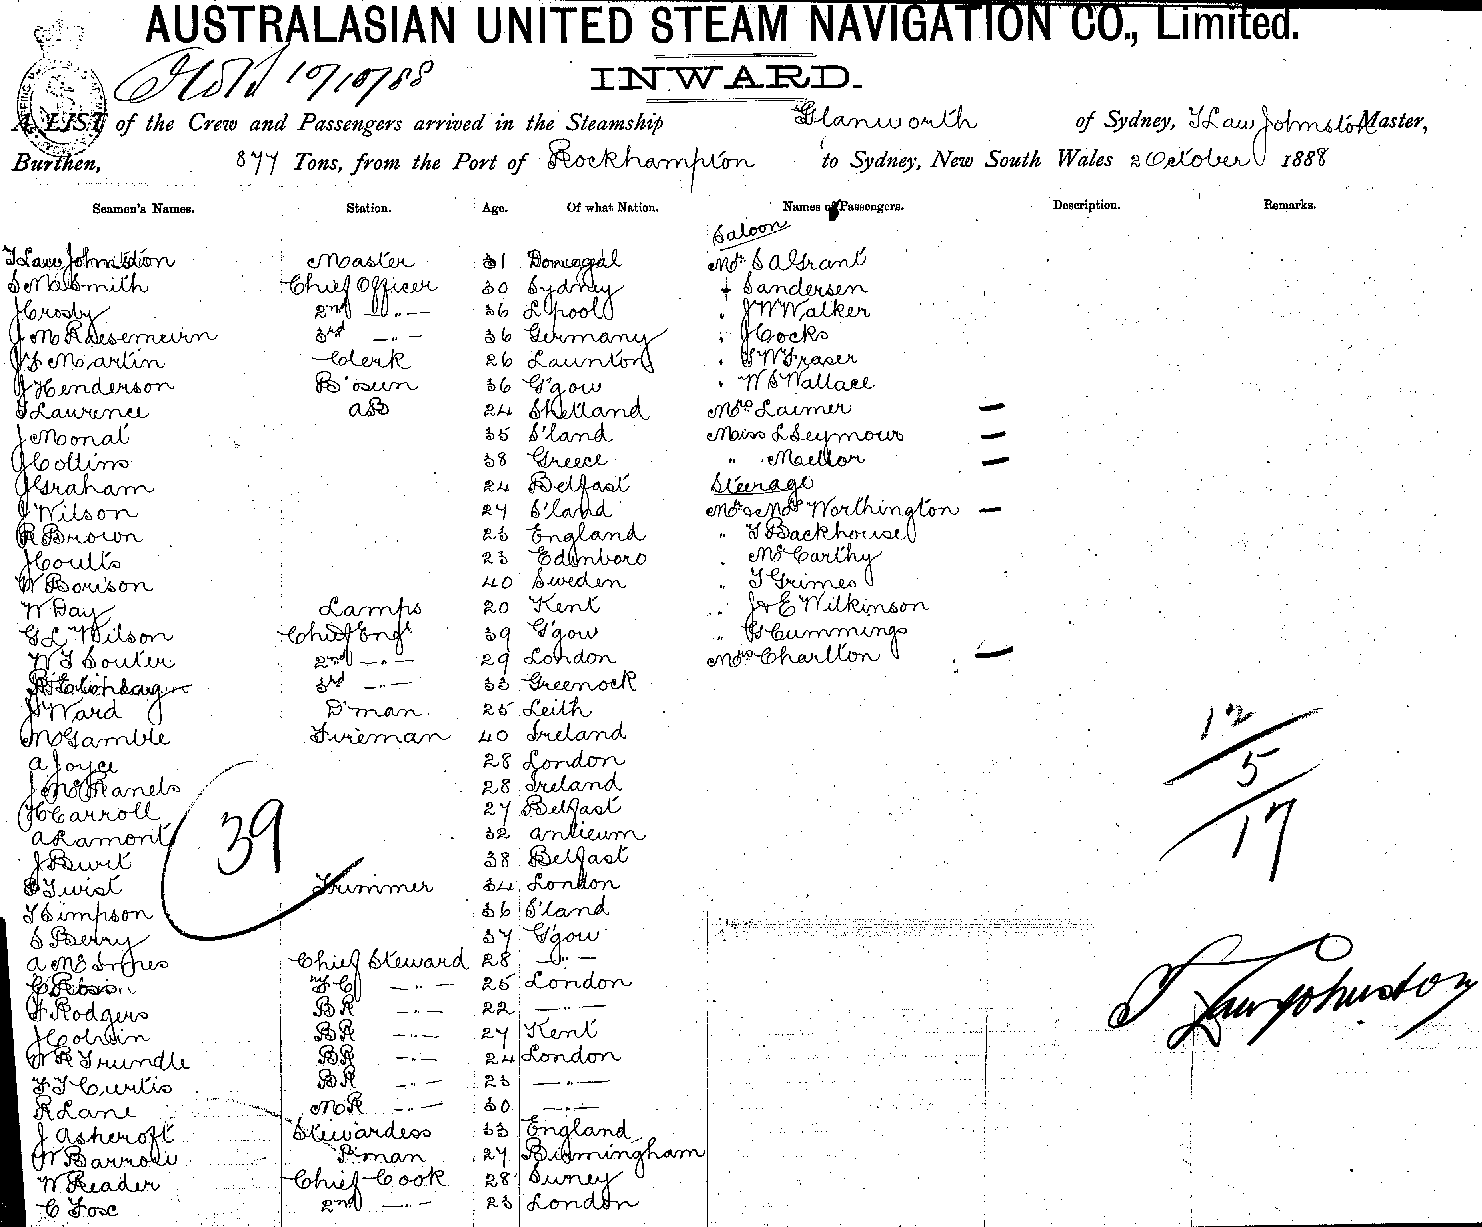 AUSTRALASIAN UNITED STEAM NAVIGATION CO., Limited.
10/10/88 INWARD.
A LIST of the Crew and Passengers arrived in the Steamship Glanworth of Sydney, T Law Johnston Master,
Burthen, 877 Tons, from the Port of Rockhampton to Sydney, New South Wales 2 October 1888
Seamen's Names. Station. Age. Of what Nation. Names of Passengers. Description. Remarks.
Saloon
T Law Johnston Master 31 Donegal Mr S A Grant
S M Smith Chief Officer 30 Sydney " Sandersen
J Crosby 2nd —"— 36 L'pool " J W Walker
J M 3rd —"— 36 Germany " J Cocks
J S Martin Clerk 26 Launton " T W Fraser
J Henderson B'osun 36 G'gow " W S Wallace
T Laurence AB 24 Shetland Mrs Laimer —
J Monat 35 S'land Miss L Seymour —
J Collins 38 Greece " Mellor —
J Graham 24 Belfast Steerage
J Wilson 27 S'land Mr & Mrs Worthington —
R Brown 23 England " T Backhouse
J Coutts 23 Edinboro " McCarthy
W Borison 40 Sweden " T Grimes
W Day Lamps 20 Kent " J & E Wilkinson
G L Wilson Chief Engr 39 G'gow " G Cummings
W T Souter 2nd —"— 29 London Mrs Charlton —
3rd —"— 33 Greenock
J Ward D'man 25 Leith
M Gamble Fireman 40 Ireland
A Joyce 28 London
J 28 Ireland
H Carroll 27 Belfast
A Lamont 32
J Burt 38 Belfast
Twist Trimmer 34 London
T Simpson 36 S'land
S Berry 37 G'gow
A McInnes Chief Steward 28 —"—
C Ross F C —"— 25 London
F Rodgers BR —"— 22 —"—
J Colvin BR —"— 27 Kent
W R Trundle BR —"— 24 London
F T Curtis BR —"— 23 —"—
R Lane MR —"— 30 —"—
J Ashcroft Stewardess 33 England
W Barrow P'man 27 Birmingham
W Reader Chief Cook 28 Surrey
C Fox 2nd —"— 23 London
39
12
5
17
T Law Johnston